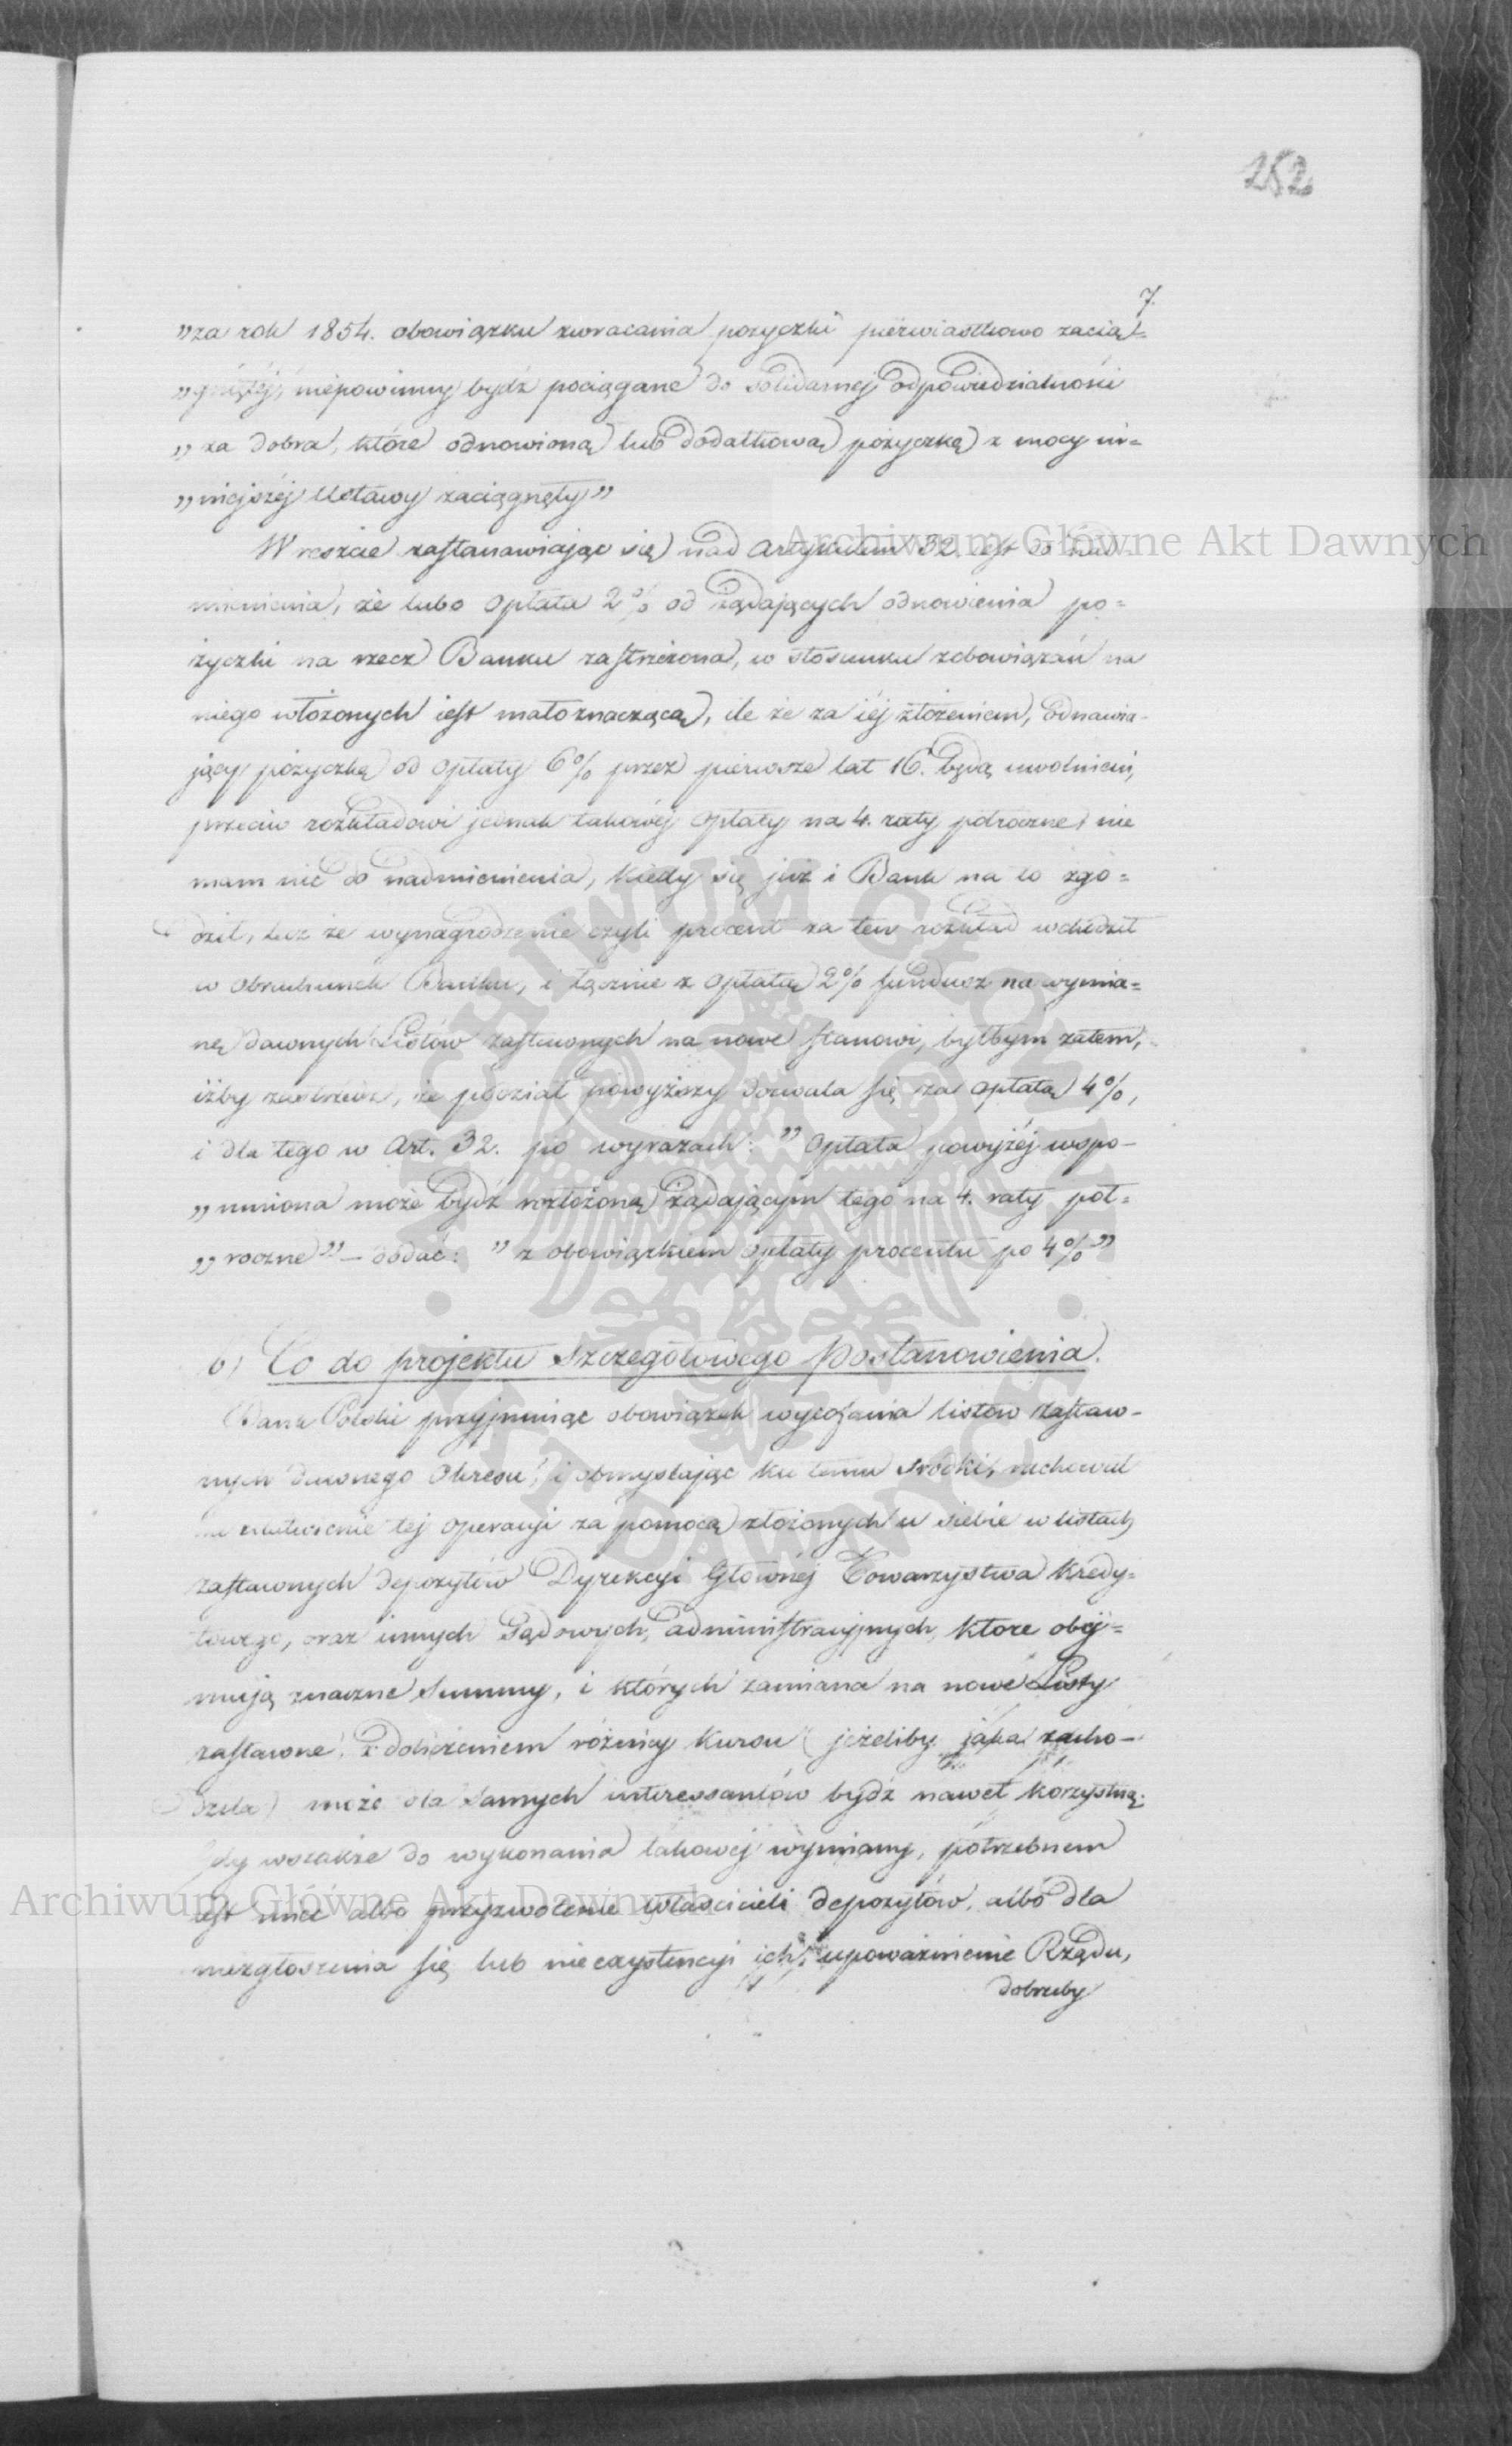 252
7.
„za rok 1854. obowiązku zwracania pożyczki pierwiastkowo zacią-
„gniętéj, niepowinny bydź pociągane do solidarnéj odpowiedzialności
„za dobra, które odnowioną lub dodatkową pożyczkę z mocy ni-
„niejszéj Ustawy zaciągnęły”
Wreszcie zastanawiając się nad Artykułem 32. iest do nad-
mienienia, że lubo opłata 2% od żądających odnowienia po-
życzki na rzecz Banku zastrzeżona, w stosunku zobowiązań na
niego włożonych iest małoznaczącą, ile że za iéj złożeniem, odnawia-
jący pożyczkę od opłaty 6% przez pierwsze lat 16. będą uwolnieni,
przeciw rozkładowi jednak takowéj opłaty na 4. raty półroczne nie
mam nic do nadmienienia, kiedy się już i Bank na to zgo-
dził, lecz że wynagrodzenie czyli procent za ten rozkład wchodził
w obrachunek Banku, i łącznie z opłatą 2% fundusz na wymia-
nę dawnych Listów zastawnych na nowe stanowi, byłbym zatem,
iżby zastrzedz, że podział powyższy dozwala się za opłatą 4%,
i dla tego w Art. 32. po wyrazach: „Opłata powyżéj wspo-
„mniona może bydź rozłożoną żądającym tego na 4. raty pół-
„roczne” – dodać: „z obowiązkiem opłaty procentu po 4%”
b) Co do projektu szczegółowego Postanowienia.
Bank Polski przyjmując obowiązek wycofania listów zastaw-
nych dawnego Okresu, i obmyślając ku temu środki, rachował
na ułatwienie téj operacyi za pomocą złożonych u siebie w listach
zastawnych depozytów Dyrekcyi Głównéj Towarzystwa Kredy-
towego, oraz innych Sądowych, administracyjnych, które obej-
mują znaczne Summy, i których zamiana na nowe Listy
zastawne, z doliczeniem różnicy kursu (jeżeliby jaka zacho-
dziła) może dla samych interessantów bydź nawet korzystną.
Gdy wszakże do wykonania takowéj wymiany, potrzebnem
iest mieć albo przyzwolenie właścicieli depozytów, albo dla
niezgłoszenia się lub nieexystencyi ich, upoważnienie Rządu,
dobrzeby
Archiwum Główne Akt Dawnych
Archiwum Główne Akt Dawnych
ARCHIWUM GŁÓWNE AKT DAWNYCH